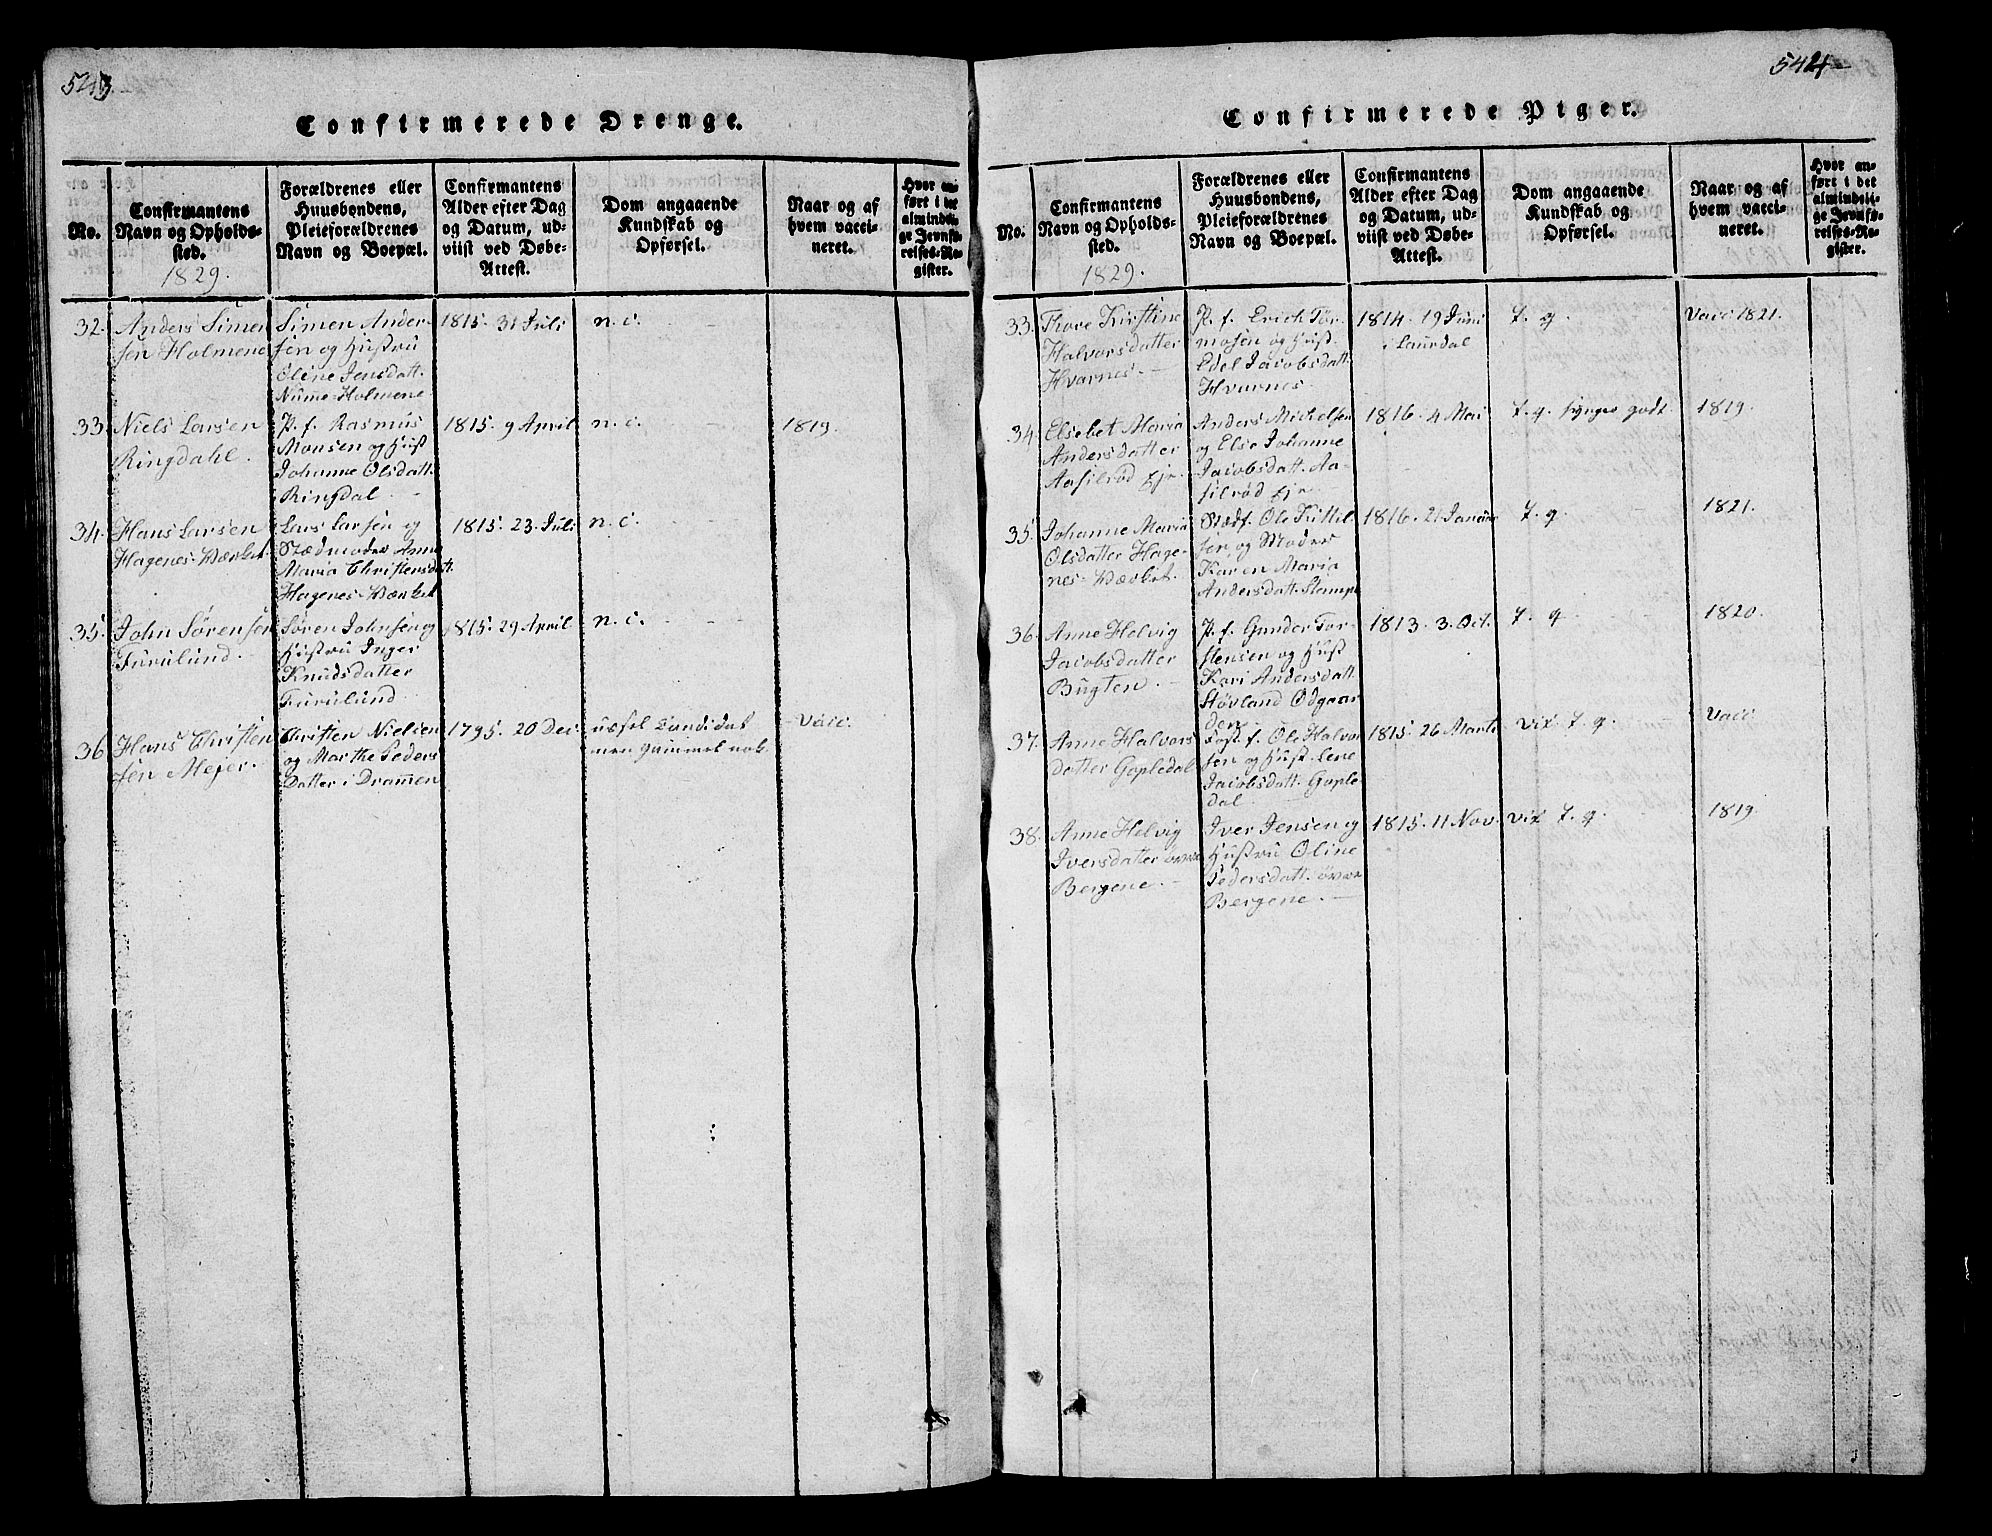 543
Confirmerede Drenge.
No.
Confirmantens
Navn og Opholds-
sted.
1829.
Forældrenes eller
Huusbondens,
Pleieforældrenes
Navn og Boepæl.
Confirmantens
Alder efter Dag
og Datum, ud-
viist ved Døbe-
Attest.
Dom angaaende
Kundskab og
Opførsel.
Naar og af
hvem vacci-
neret.
Hvor an-
ført i det
almindeli-
ge Jevnfø-
relses-Re-
gister.
32.
Anders Simen
sen Holmene
Simen Ander-
sen og Hustru
Oline Jensdatt.
Nume-Holmene
1815. 31 Juli
n. c.
33.
Niels Larsen
Ringdahl.
P. f. Rasmus
Monsen og Hust
Johanne Olsdatt.
Ringdal.
1815. 9 April
n. c.
1819.
34.
Hans Larsen
Hagenes-Værket
Lars Larsen og
Stædmoder Anne
Maria Christensdatt.
Hagenes-Værket
1815. 23. Juli
n. c.
35.
John Sørensen
Furulund.
Søren Johnsen og
Hustru Inger
Knudsdatter
Furulund
1815. 29 April
n. c.
36
Hans Christen
sen Mejer.
Christen Nielsen
og Marthe Peders
Datter i Drammen
1795. 20 Dec.
ussel Candidat
men gammel nok.
Vacc.
544
Confirmerede Piger.
No.
Confirmantens
Navn og Opholds-
sted.
1829.
Forældrenes eller
Huusbondens,
Pleieforældrenes
Navn og Boepæl.
Confirmantens
Alder efter Dag
og Datum, ud-
viist ved Døbe-
Attest.
Dom angaaende
Kundskab og
Opførsel.
Naar og af
hvem vacci-
neret.
Hvor an-
ført i det
almindeli-
ge Jevnfø-
relses-Re-
gister.
33.
Thore Kirstine
Halvorsdatter
Hvarnes.
P. f. Erich Tor-
mosen og Hust.
Edel Jacobsdatt.
Hvarnes
1814. 19 Juni
i Laurdal
T. g.
Vacc 1821.
34.
Elsebet Maria
Andersdatter
Aasilrød Eje.
Anders Michelsen
og Else Johanne
Jacobsdatt. Aa-
silrød Eje
1816. 4 Mai
T. g. synger godt.
1819.
35.
Johanne Maria
Olsdatter Hage-
nes-Værket.
Stedf. Ole Kittil
sen, og Moder
Karen Maria
Andersdatt. Stampe
1816. 21 Januar
T. g.
1821.
36.
Anne Helvig
Jacobsdatter
Bugten.
P. f. Gunder Tor-
stensen og Hust
Kari Andersdatt.
Støvland Ødgaar
den
1813. 3. Oct.
T. g.
1820.
37.
Anne Halvors
datter Gopledal
Fost. f. Ole Halvor
sen og Hust Lene
Jacobsdatt. Gople-
dal
1815. 26 Marts
vix T. g.
Vacc
38.
Anne Helvig
Iversdatter øvre
Bergene.
Iver Jensen og
Hustru Oline
Pedersdatt. øvre
Bergene.
1815. 11 Nov.
vix T. g.
1819.